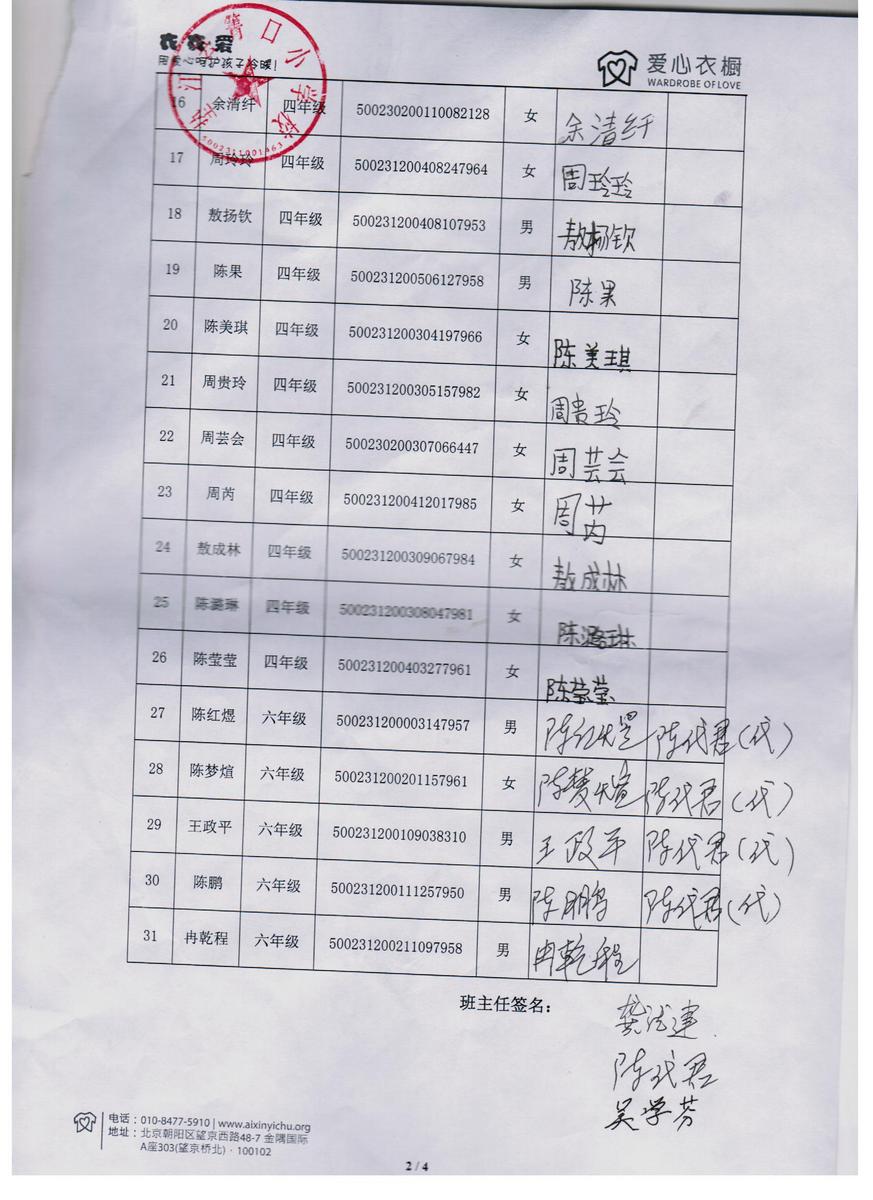 衣衣爱
用爱心呵护孩子冷暖!
爱心衣橱
WARDROBE OF LOVE
箐口小学校
5002311001463
16 余清纤 四年级 500230200110082128 女 余清纤
17 周玲玲 四年级 500231200408247964 女 周玲玲
18 敖扬钦 四年级 500231200408107953 男 敖杨钦
19 陈果 四年级 500231200506127958 男 陈果
20 陈美琪 四年级 500231200304197966 女 陈美琪
21 周贵玲 四年级 500231200305157982 女 周贵玲
22 周芸会 四年级 500230200307066447 女 周芸会
23 周芮 四年级 500231200412017985 女 周芮
24 敖成林 四年级 500231200309067984 女 敖成林
25 陈潞琳 四年级 500231200308047981 女 陈潞琳
26 陈莹莹 四年级 500231200403277961 女 陈莹莹
27 陈红煜 六年级 500231200003147957 男 陈红煜 陈代君(代)
28 陈梦煊 六年级 500231200201157961 女 陈梦煊 陈代君(代)
29 王政平 六年级 500231200109038310 男 王政平 陈代君(代)
30 陈鹏 六年级 500231200111257950 男 陈鹏 陈代君(代)
31 冉乾程 六年级 500231200211097958 男 冉乾程
班主任签名:
陈代君
吴学芬
电话:010-8477-5910 | www.aixinyichu.org
地址:北京朝阳区望京西路48-7 金隅国际
A座303(望京桥北)·100102
2 / 4